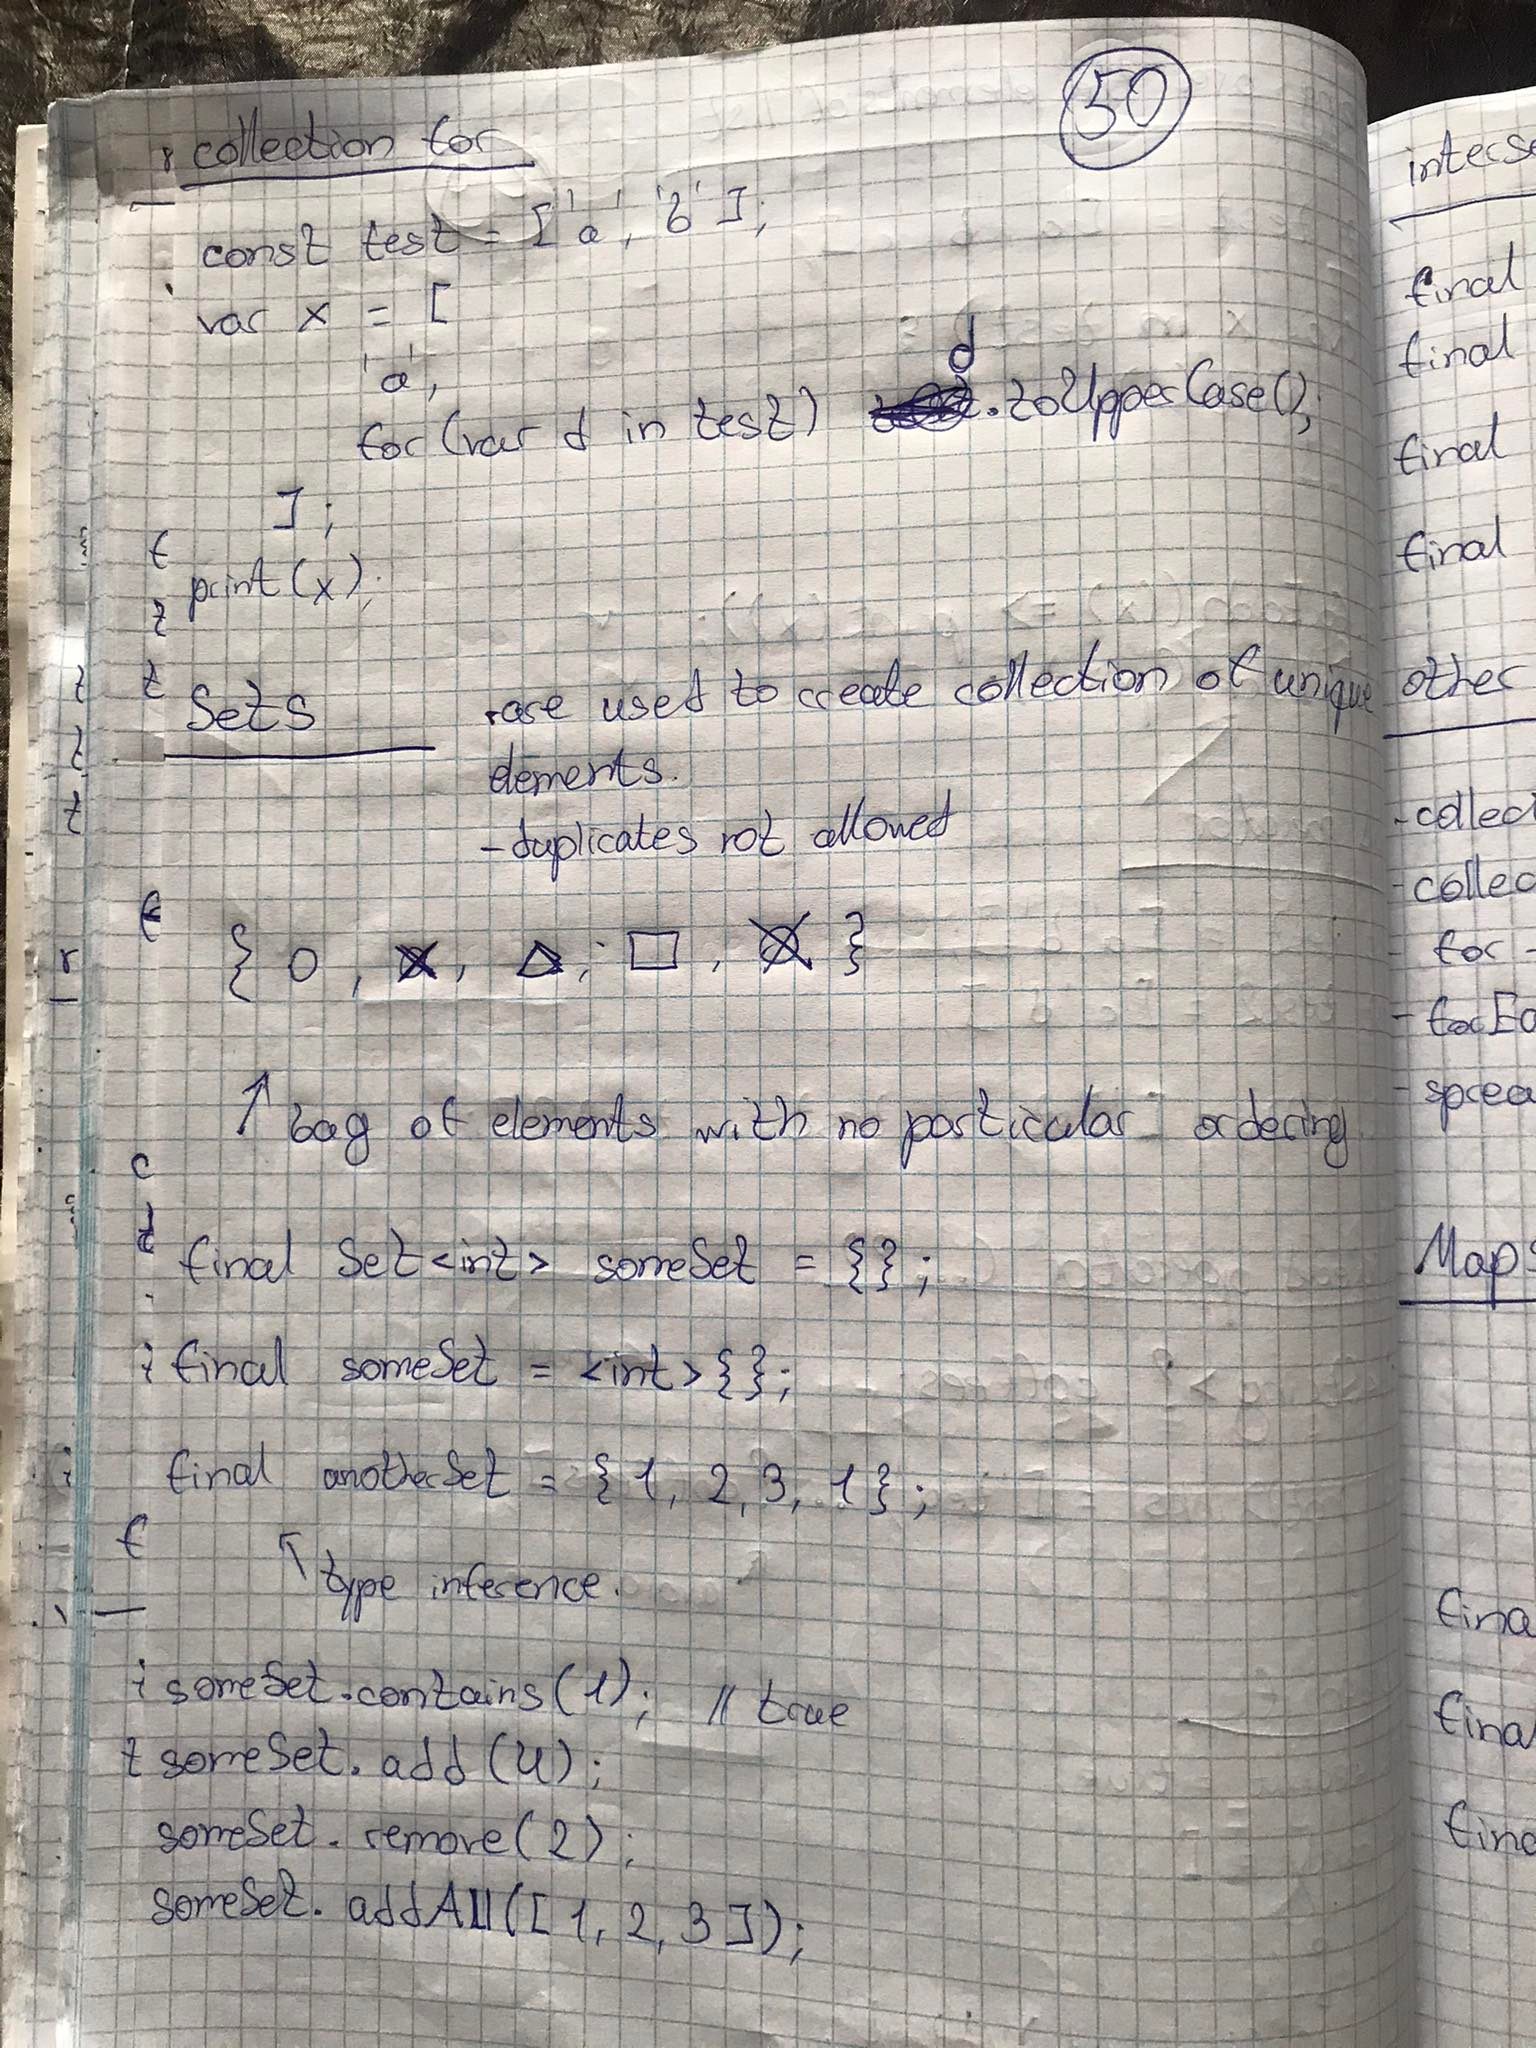 50
collection for
const test = ['a', 'b'];
var x = [
'a',
for(var d in test) d.toUpperCase();
];
print(x);
Sets
.are used to create collection of unique
elements.
-duplicates not allowed
{ , , ; , }
↑ bag of elements with no particular ordering
final Set<int> someSet = {};
final someSet = <int>{};
final anotherSet = {1, 2, 3, 1};
↖ type inference.
someSet.contains(1); // true
someSet.add(4);
someSet.remove(2);
someSet.addAll([1, 2, 3]);
final
final
final
final
other
- for -
Maps